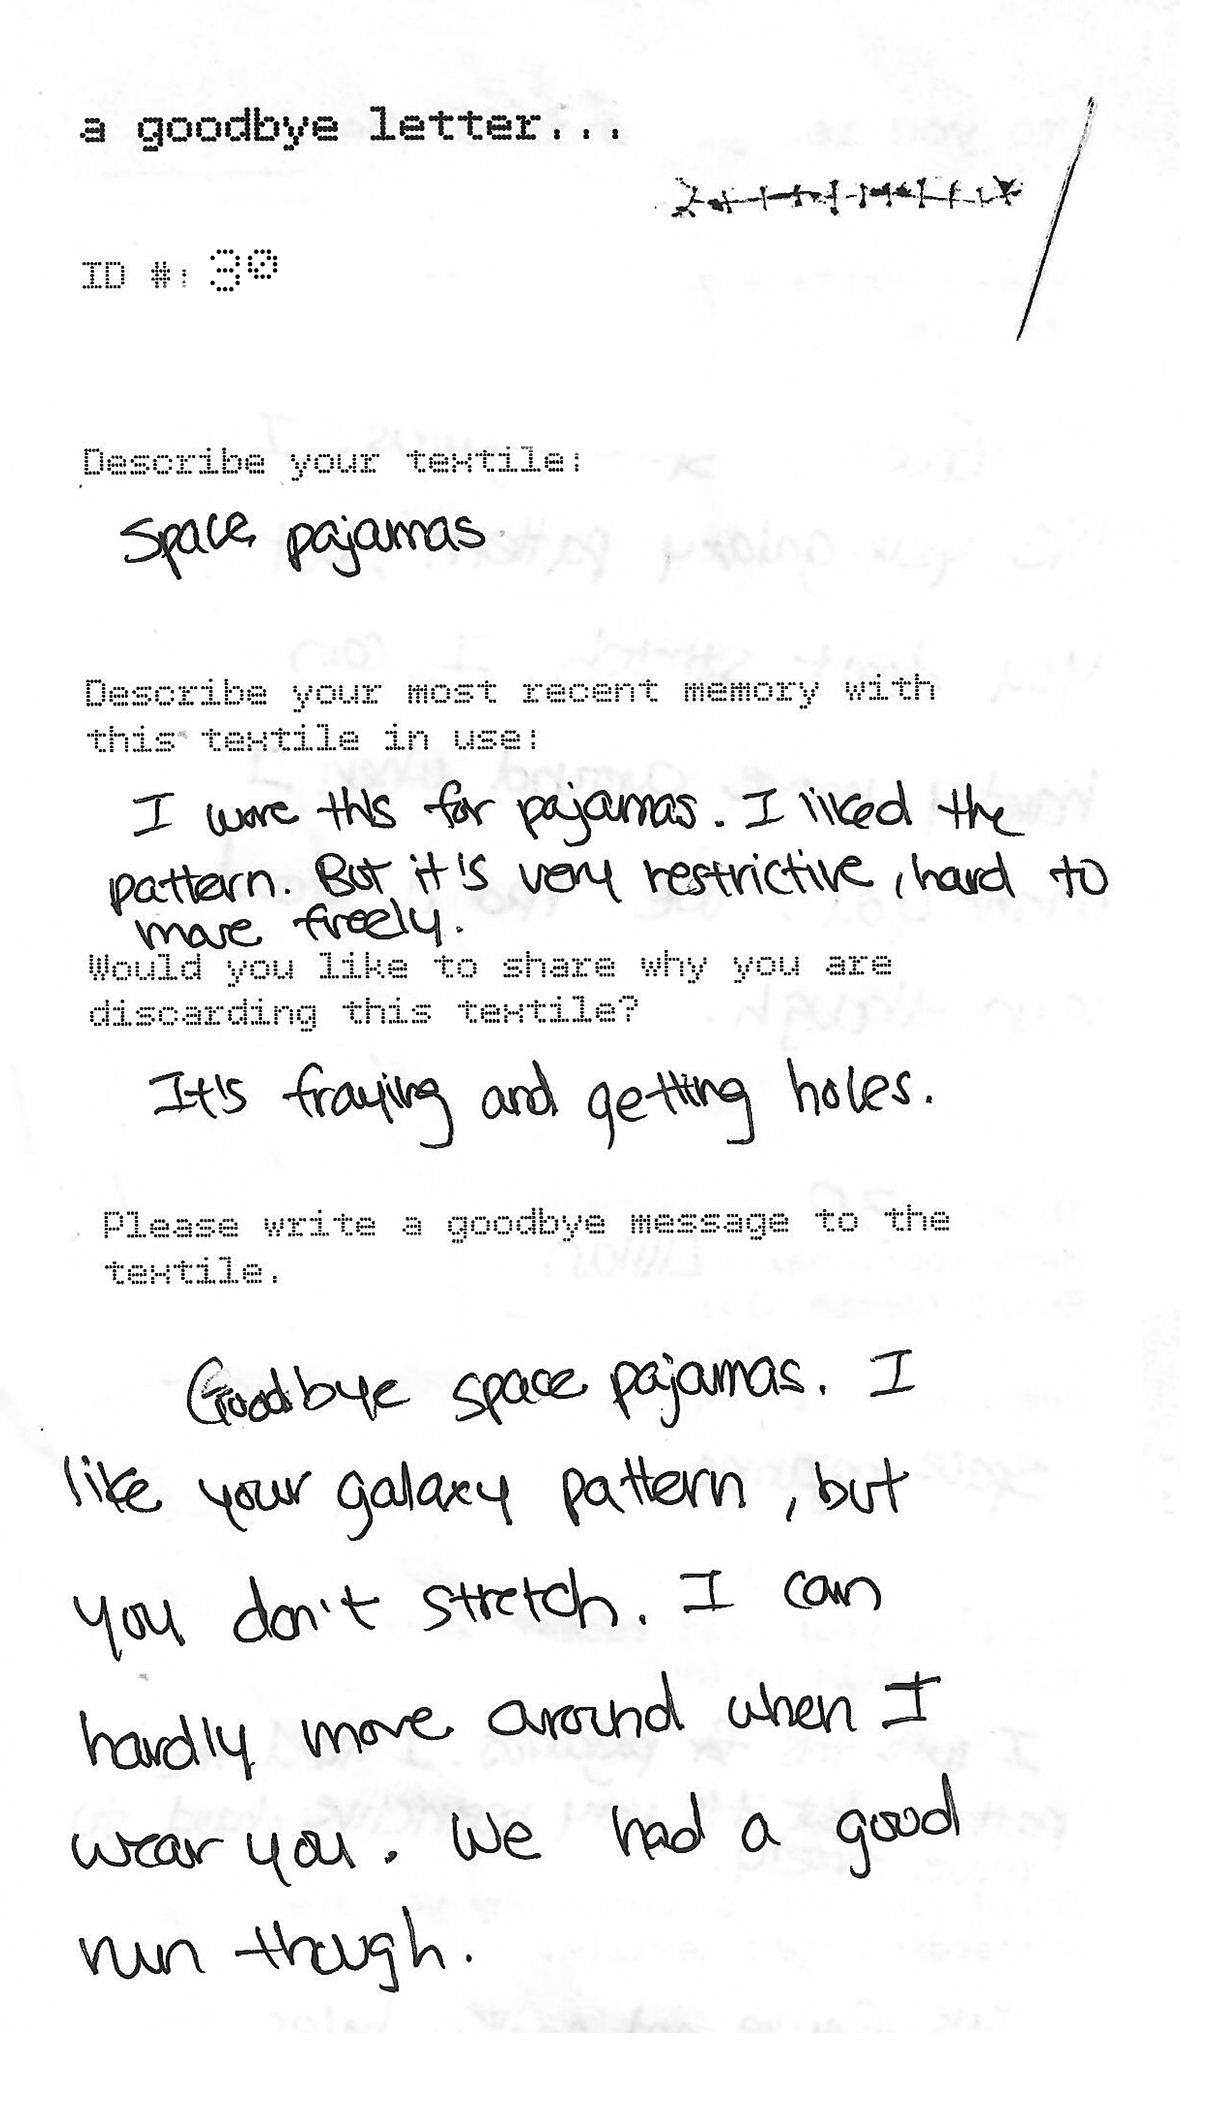 a goodbye letter...
ID #: 30
Describe your textile:
Space pajamas
Describe your most recent memory with
this textile in use:
I wore this for pajamas. I liked the
pattern. But it's very restrictive, hard to
move freely.
Would you like to share why you are
discarding this textile?
It's fraying and getting holes.
Please write a goodbye message to the
textile.
Goodbye space pajamas. I
like your galaxy pattern, but
you don't stretch. I can
hardly move around when I
wear you. We had a good
run though.